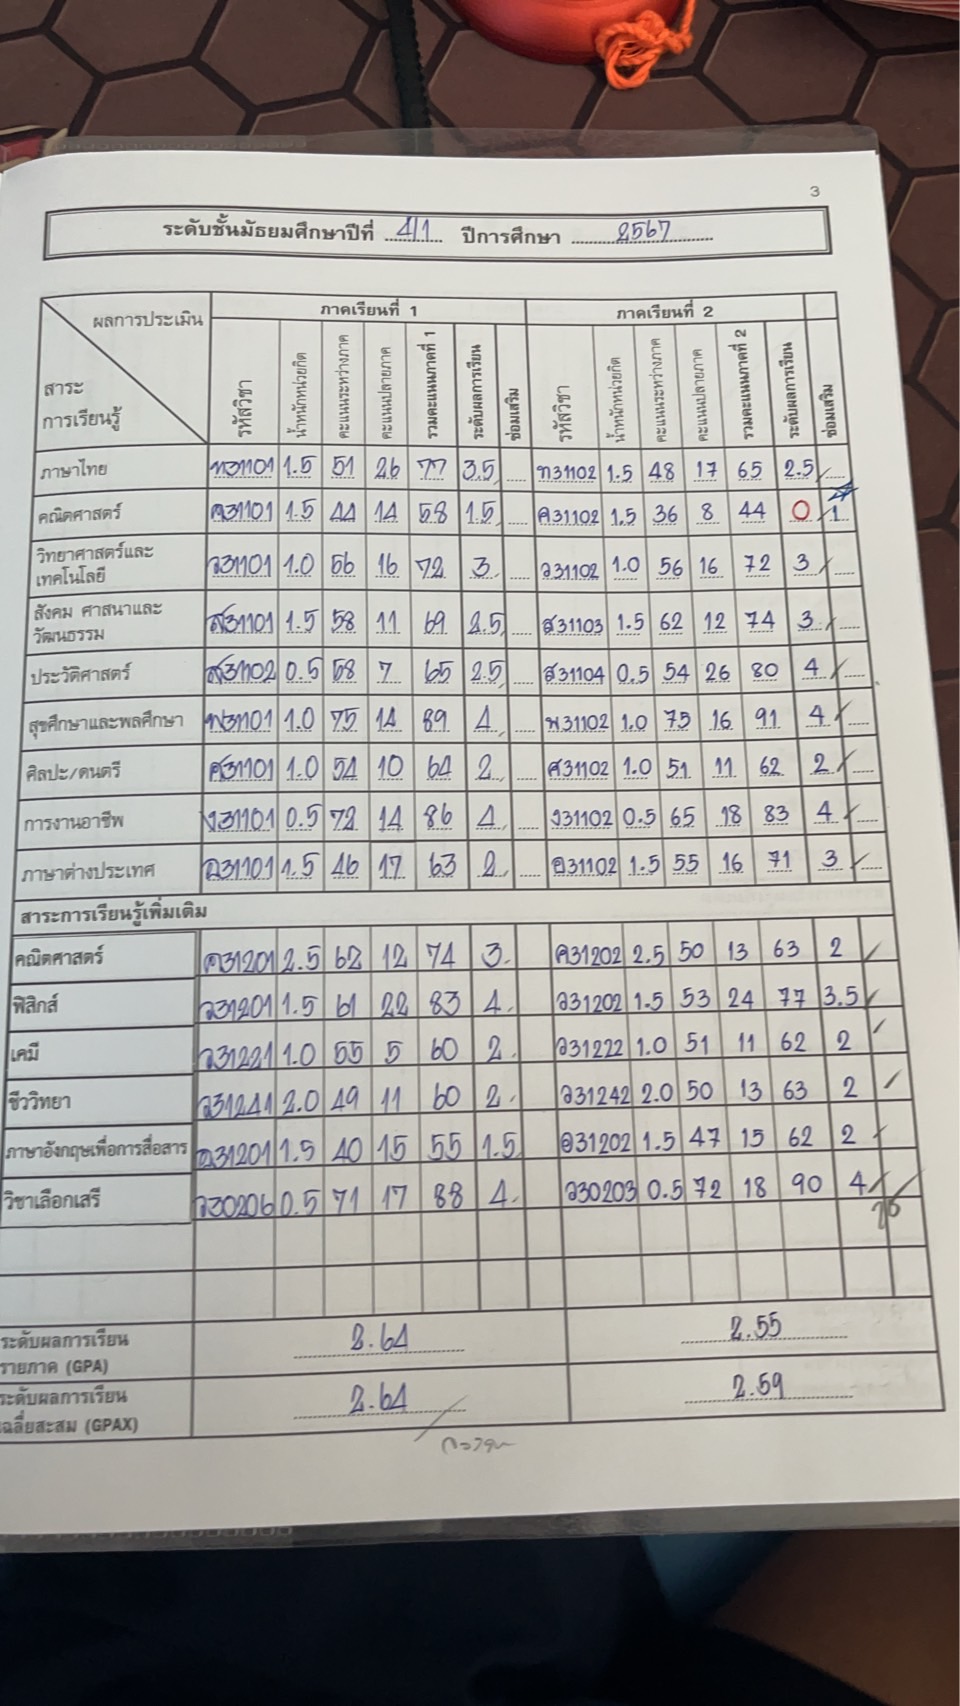 3
ระดับชั้นมัธยมศึกษาปีที่ 4/1 ปีการศึกษา 2567
ผลการประเมิน
สาระ
การเรียนรู้
ภาคเรียนที่ 1 ภาคเรียนที่ 2
รหัสวิชา น้ำหนักหน่วยกิต คะแนนระหว่างภาค คะแนนปลายภาค รวมคะแนนภาคที่ 1 ระดับผลการเรียน ซ่อมเสริม รหัสวิชา น้ำหนักหน่วยกิต คะแนนระหว่างภาค คะแนนปลายภาค รวมคะแนนภาคที่ 2 ระดับผลการเรียน ซ่อมเสริม
ภาษาไทย ท31101 1.5 51 26 77 3.5 ท31102 1.5 48 17 65 2.5
คณิตศาสตร์ ค31101 1.5 44 14 58 1.5 ค31102 1.5 36 8 44 0 1
วิทยาศาสตร์และ
เทคโนโลยี ว31101 1.0 56 16 72 3 ว31102 1.0 56 16 72 3
สังคม ศาสนาและ
วัฒนธรรม ส31101 1.5 58 11 69 2.5 ส31103 1.5 62 12 74 3
ประวัติศาสตร์ ส31102 0.5 58 7 65 2.5 ส31104 0.5 54 26 80 4
สุขศึกษาและพลศึกษา พ31101 1.0 75 14 89 4 พ31102 1.0 75 16 91 4
ศิลปะ/ดนตรี ศ31101 1.0 54 10 64 2 ศ31102 1.0 51 11 62 2
การงานอาชีพ ง31101 0.5 72 14 86 4 ง31102 0.5 65 18 83 4
ภาษาต่างประเทศ อ31101 1.5 46 17 63 2 อ31102 1.5 55 16 71 3
สาระการเรียนรู้เพิ่มเติม
คณิตศาสตร์ ค31201 2.5 62 12 74 3 ค31202 2.5 50 13 63 2
ฟิสิกส์ ว31201 1.5 61 22 83 4 ว31202 1.5 53 24 77 3.5
เคมี ว31221 1.0 55 5 60 2 ว31222 1.0 51 11 62 2
ชีววิทยา ว31241 2.0 49 11 60 2 ว31242 2.0 50 13 63 2
ภาษาอังกฤษเพื่อการสื่อสาร อ31201 1.5 40 15 55 1.5 อ31202 1.5 47 15 62 2
วิชาเลือกเสรี ว30206 0.5 71 17 88 4 ว30203 0.5 72 18 90 4
ระดับผลการเรียน
รายภาค (GPA) 2.64 2.55
ระดับผลการเรียน
เฉลี่ยสะสม (GPAX) 2.64 2.59